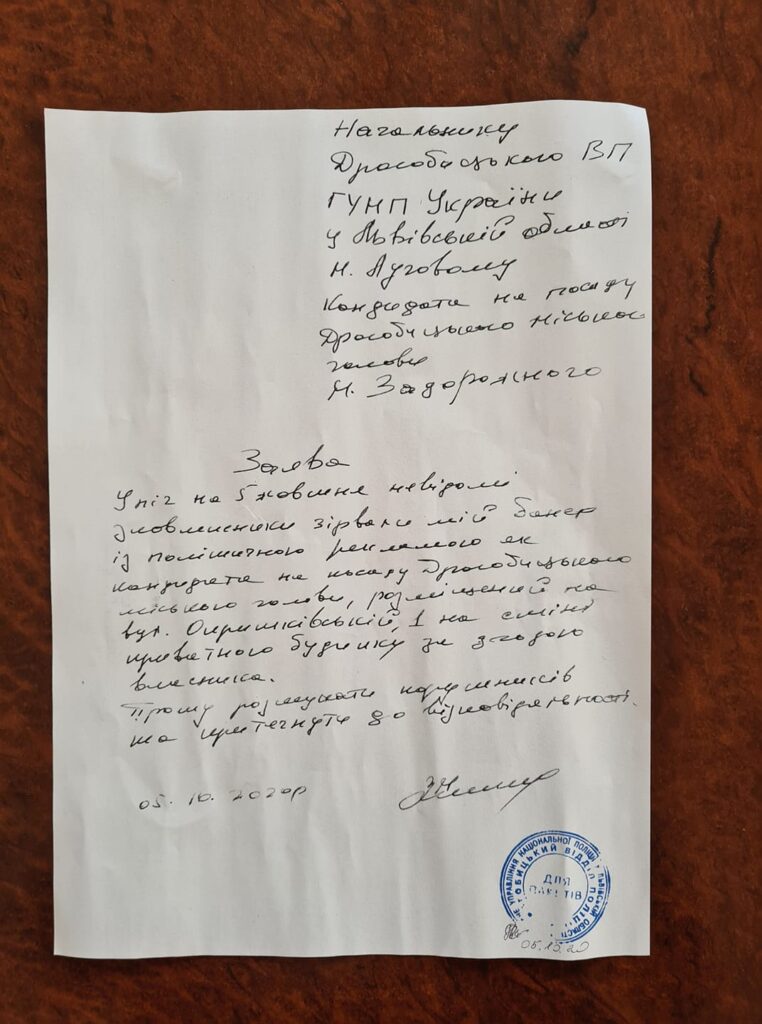 Начальнику
Дрогобицького ВП
ГУНП України
у Львівській області
М. Луговому
Кандидата на посаду
Дрогобицького міського
голови
М. Задорожного
Заява
У ніч на 5 жовтня невідомі
зловмисники зірвали мій банер
із політичною рекламою як
кандидата на посаду Дрогобицького
міського голови, розміщений на
вул. Опришківській, 1 на стіні
приватного будинку за згодою
власника.
Прошу розшукати порушників
та притягнути до відповідальності.
05. 10. 2020р
УПРАВЛІННЯ НАЦІОНАЛЬНОЇ ПОЛІЦІЇ У ЛЬВІВСЬКІЙ ОБЛАСТІ
ВІДДІЛ ПОЛІЦІЇ
ДЛЯ
ПАКЕТІВ
05.10.20